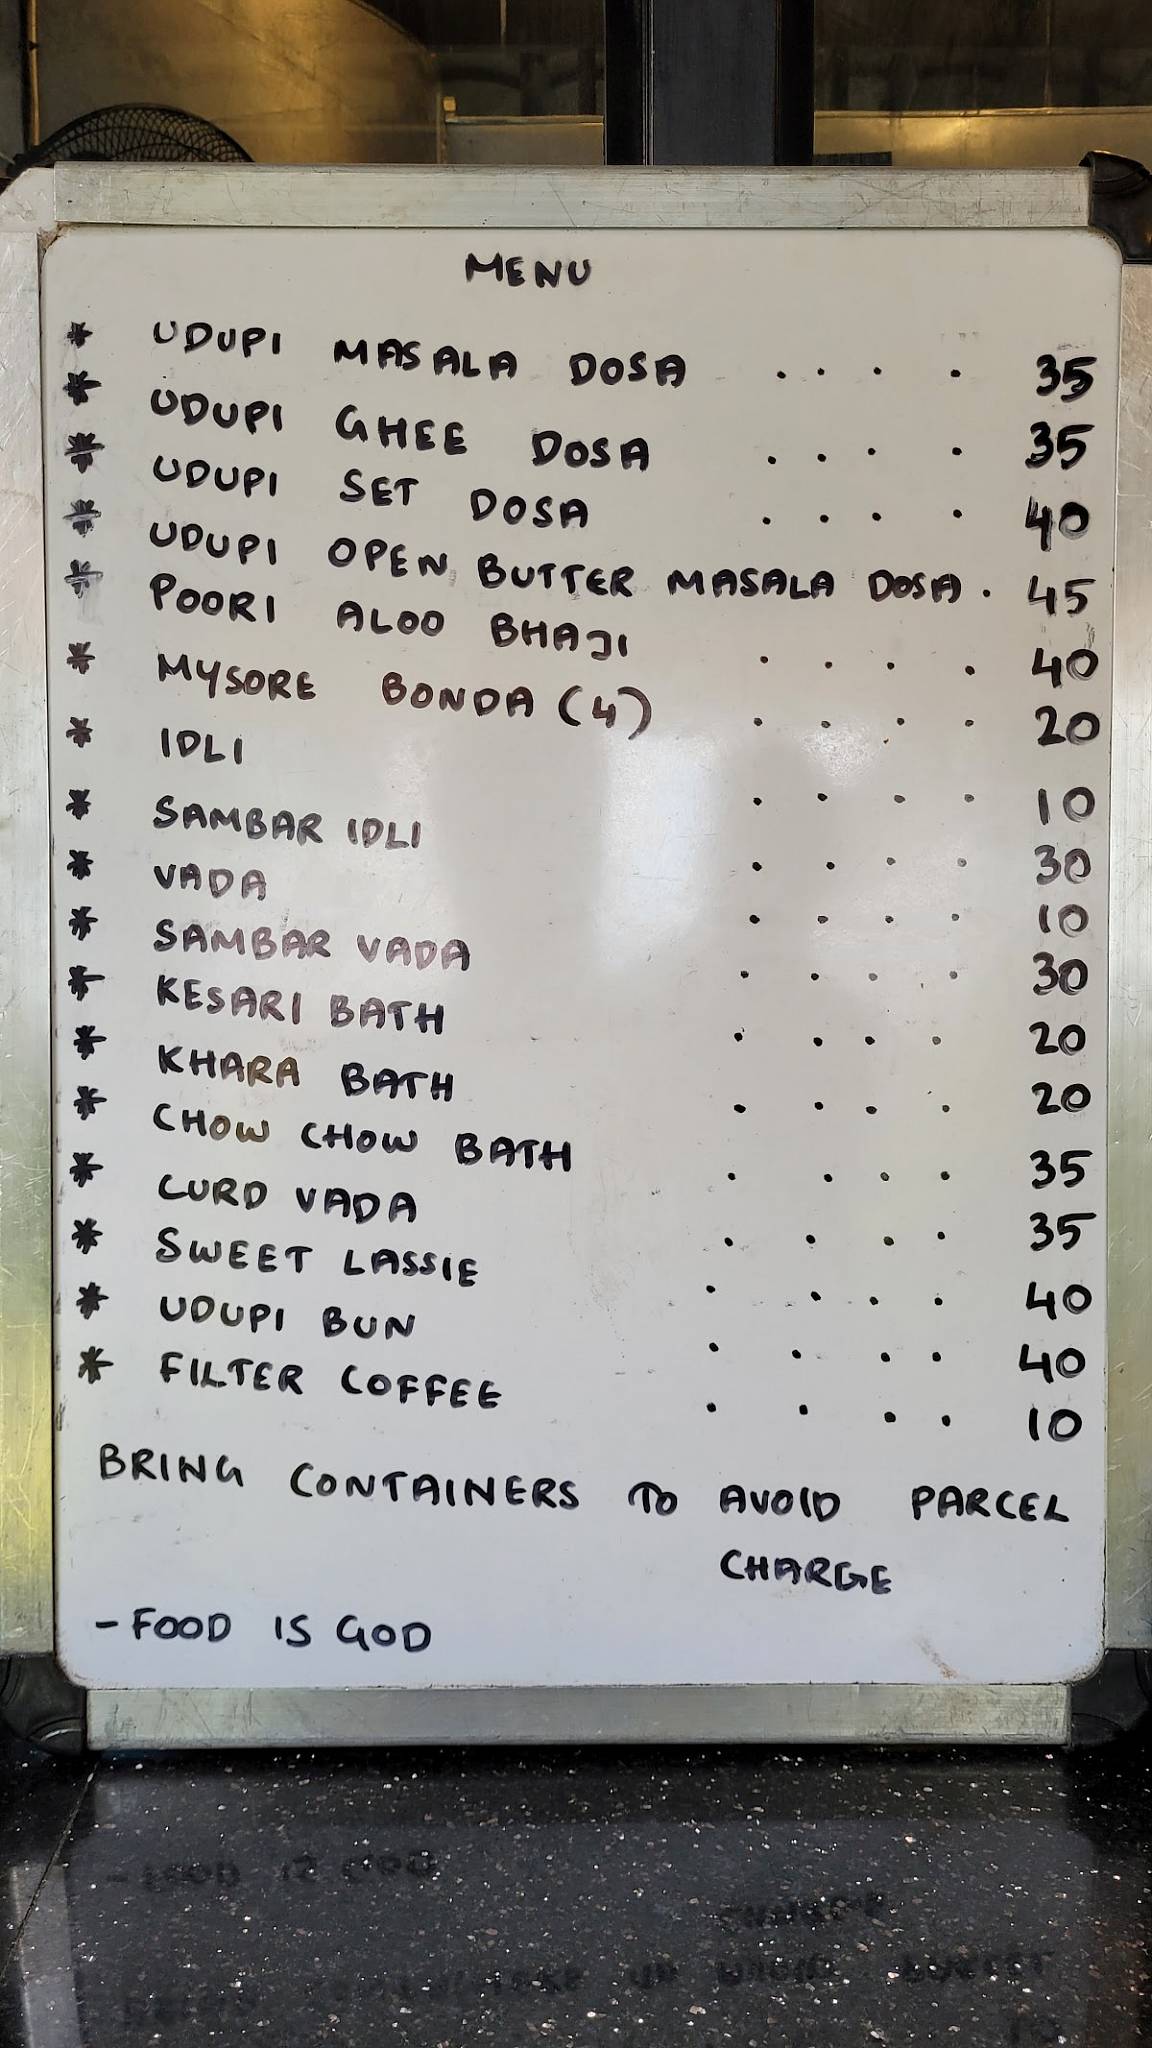 MENU
* UDUPI MASALA DOSA . . . . 35
* UDUPI GHEE DOSA . . . . 35
* UDUPI SET DOSA . . . . 40
* UDUPI OPEN BUTTER MASALA DOSA . 45
* POORI ALOO BHAJI . . . . 40
* MYSORE BONDA (4) . . . . 20
* IDLI . . . . 10
* SAMBAR IDLI . . . . 30
* VADA . . . . 10
* SAMBAR VADA . . . . 30
* KESARI BATH . . . . 20
* KHARA BATH . . . . 20
* CHOW CHOW BATH . . . . 35
* CURD VADA . . . . 35
* SWEET LASSIE . . . . 40
* UDUPI BUN . . . . 40
* FILTER COFFEE . . . . 10
BRING CONTAINERS TO AVOID PARCEL
CHARGE
- FOOD IS GOD